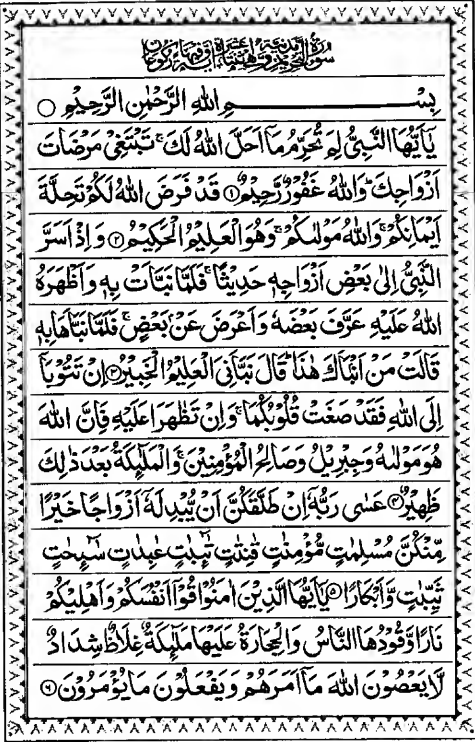 سُوۡرَةُ التَّحۡرِیۡمِ مَدَنِیَّةٌ وَّهِیَ اثۡنَتَا عَشَرَةَ اٰیَةً
بِسۡمِ اللهِ الرَّحۡمٰنِ الرَّحِیۡمِ
یٰۤاَیُّهَا النَّبِیُّ لِمَ تُحَرِّمُ مَاۤ اَحَلَّ اللهُ لَكَ ۚ تَبۡتَغِیۡ مَرۡضَاتَ
اَزۡوَاجِكَ ؕ وَاللهُ غَفُوۡرٌ رَّحِیۡمٌ ۝۱ قَدۡ فَرَضَ اللهُ لَكُمۡ تَحِلَّةَ
اَیۡمَانِكُمۡ ۚ وَاللهُ مَوۡلٰىكُمۡ ۚ وَهُوَ الۡعَلِیۡمُ الۡحَكِیۡمُ ۝۲ وَاِذۡ اَسَرَّ
النَّبِیُّ اِلٰی بَعۡضِ اَزۡوَاجِهٖ حَدِیۡثًا ۚ فَلَمَّا نَبَّاَتۡ بِهٖ وَاَظۡهَرَهُ
اللهُ عَلَیۡهِ عَرَّفَ بَعۡضَهٗ وَاَعۡرَضَ عَنۡۢ بَعۡضٍ ۚ فَلَمَّا نَبَّاَهَا بِهٖ
قَالَتۡ مَنۡ اَنۡۢبَاَكَ هٰذَا ؕ قَالَ نَبَّاَنِیَ الۡعَلِیۡمُ الۡخَبِیۡرُ ۝۳ اِنۡ تَتُوۡبَاۤ
اِلَی اللهِ فَقَدۡ صَغَتۡ قُلُوۡبُكُمَا ۚ وَاِنۡ تَظٰهَرَا عَلَیۡهِ فَاِنَّ اللهَ
هُوَ مَوۡلٰىهُ وَجِبۡرِیۡلُ وَصَالِحُ الۡمُؤۡمِنِیۡنَ ۚ وَالۡمَلٰٓئِكَةُ بَعۡدَ ذٰلِكَ
ظَهِیۡرٌ ۝۴ عَسٰی رَبُّهٗۤ اِنۡ طَلَّقَكُنَّ اَنۡ یُّبۡدِلَهٗۤ اَزۡوَاجًا خَیۡرًا
مِّنۡكُنَّ مُسۡلِمٰتٍ مُّؤۡمِنٰتٍ قٰنِتٰتٍ تٰٓئِبٰتٍ عٰبِدٰتٍ سٰٓئِحٰتٍ
ثَیِّبٰتٍ وَّاَبۡكَارًا ۝۵ یٰۤاَیُّهَا الَّذِیۡنَ اٰمَنُوۡا قُوۡۤا اَنۡفُسَكُمۡ وَاَهۡلِیۡكُمۡ
نَارًا وَّقُوۡدُهَا النَّاسُ وَالۡحِجَارَةُ عَلَیۡهَا مَلٰٓئِكَةٌ غِلَاظٌ شِدَادٌ
لَّا یَعۡصُوۡنَ اللهَ مَاۤ اَمَرَهُمۡ وَیَفۡعَلُوۡنَ مَا یُؤۡمَرُوۡنَ ۝۶